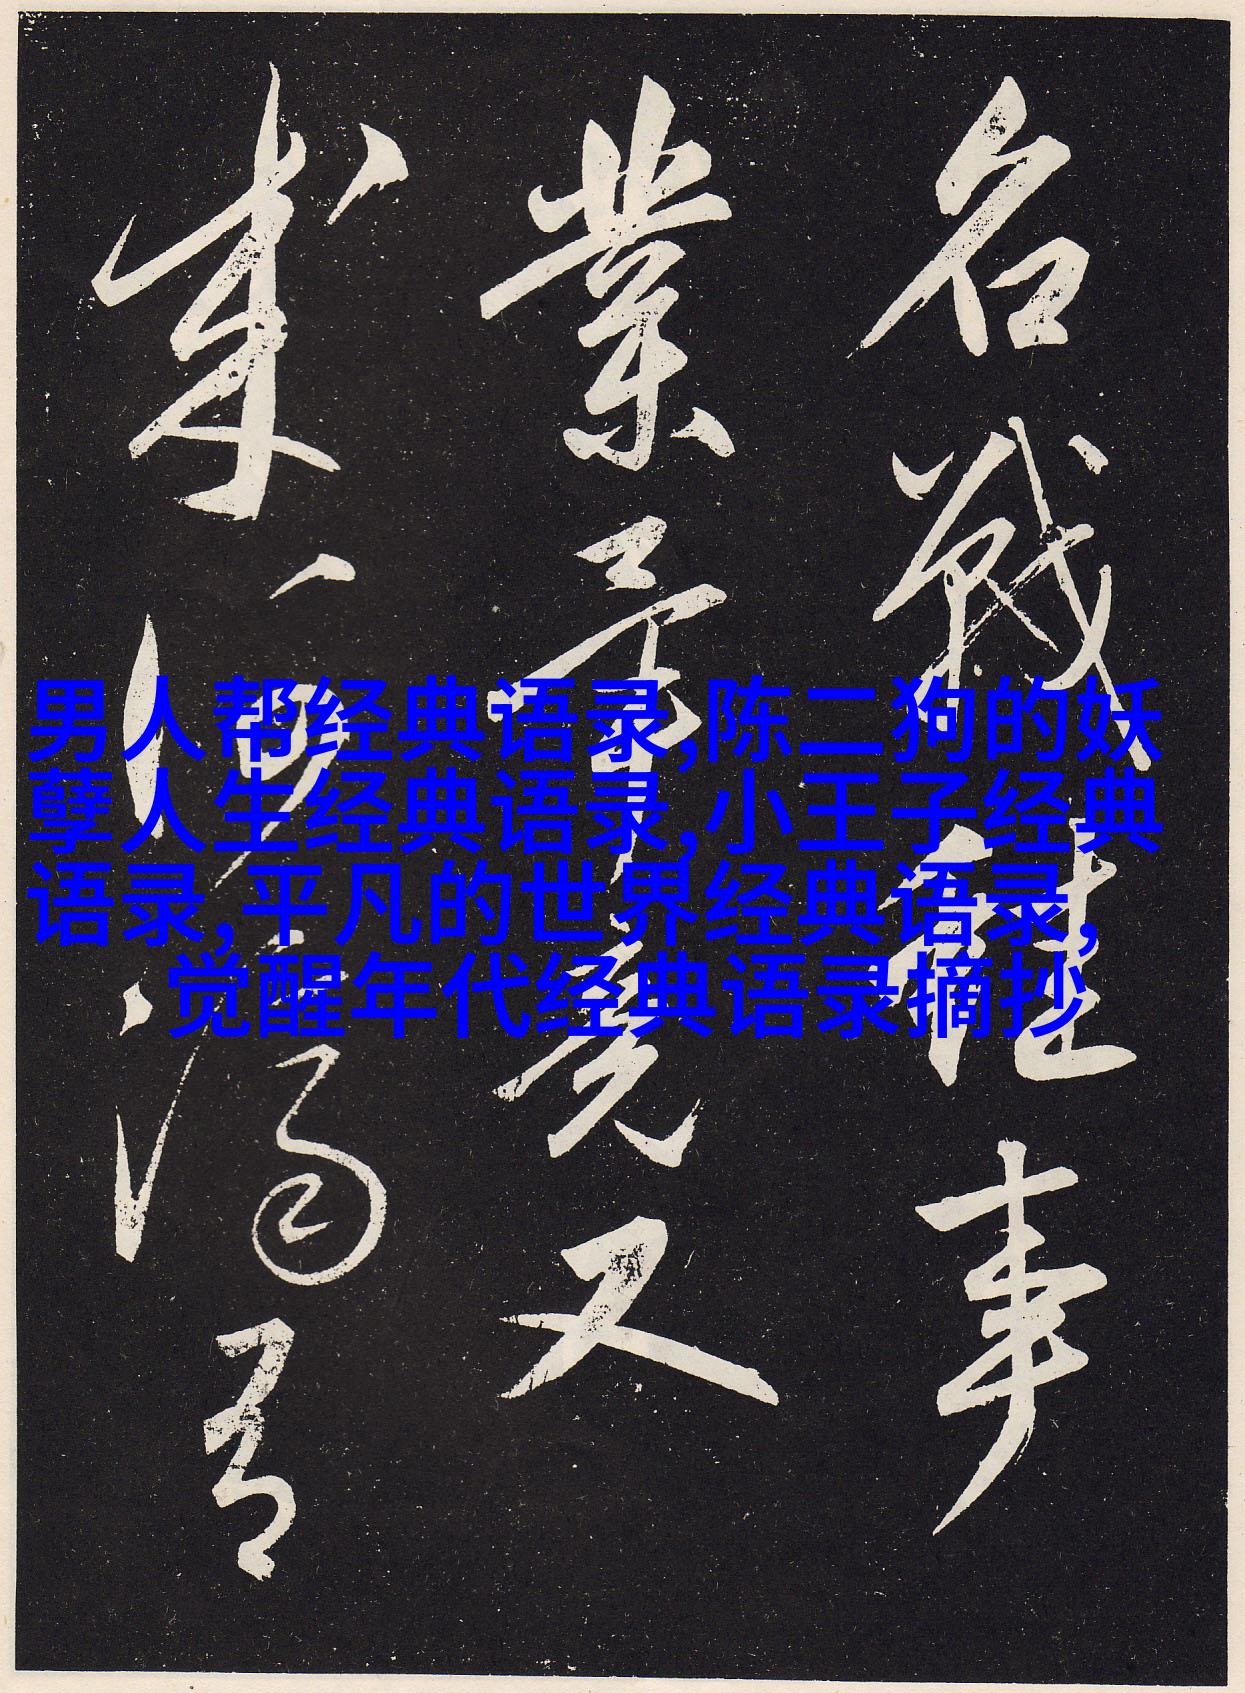 男人帮经典语录,陈二狗的妖
孽人生经典语录,小王子经典
语录,平凡的世界经典语录,
觉醒年代经典语录摘抄
名戰雖事
業竟又